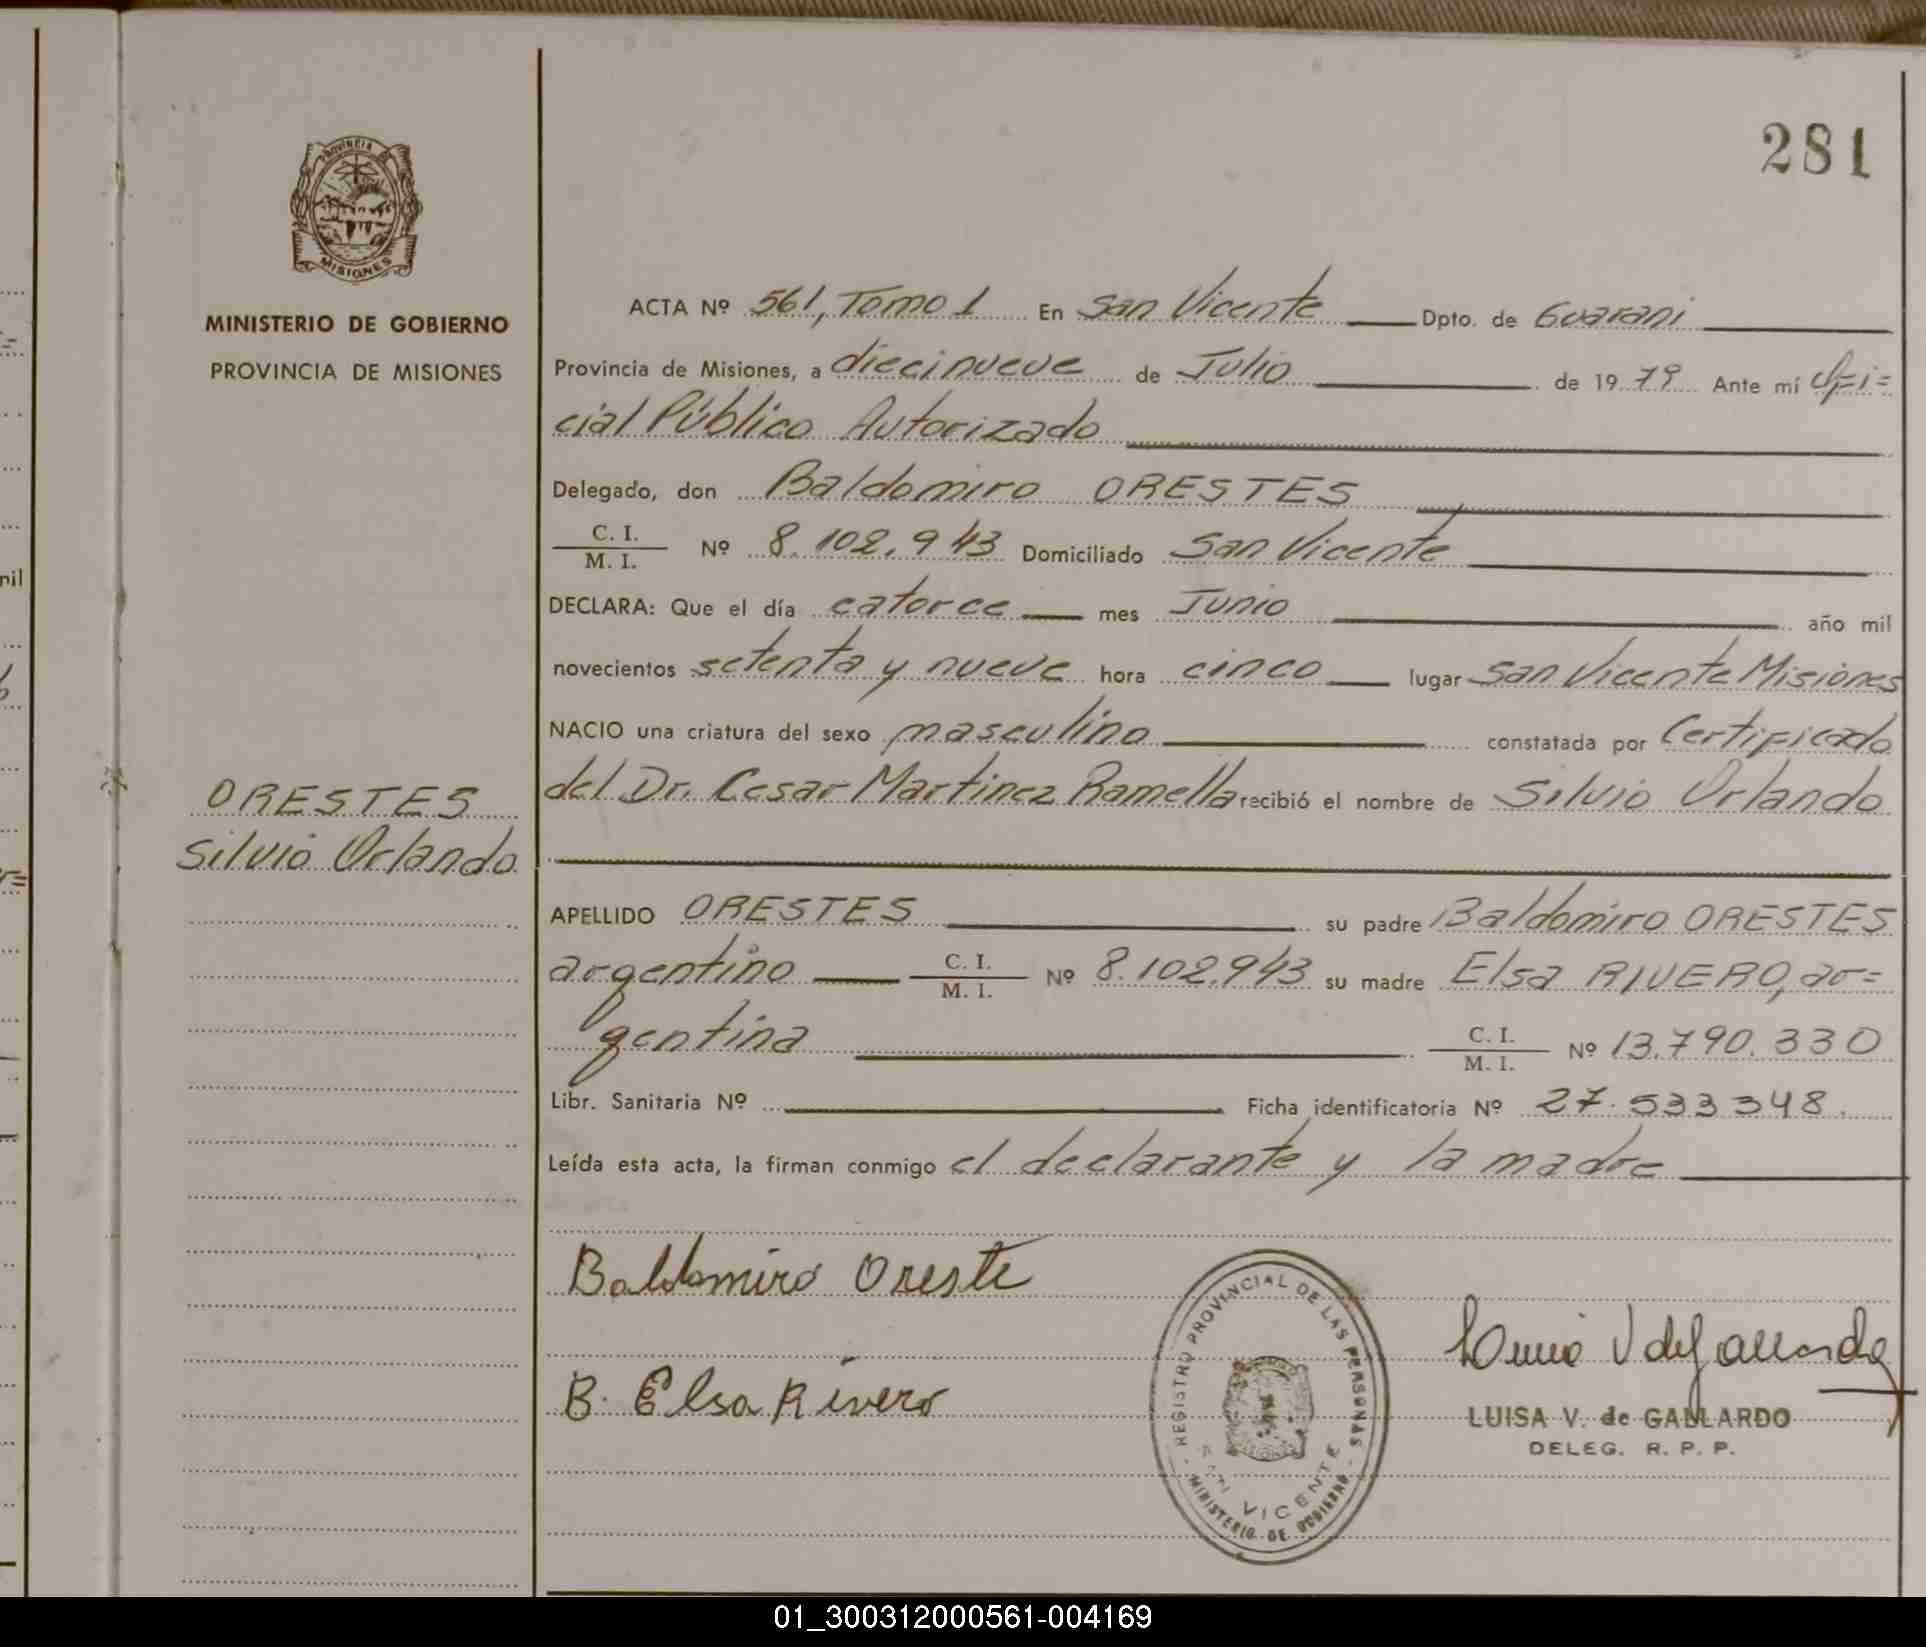 281
PROVINCIA DE
MISIONES
MINISTERIO DE GOBIERNO
PROVINCIA DE MISIONES
ACTA Nº 561, Tomo 1 En San Vicente Dpto. de Guarani
Provincia de Misiones, a diecinueve de Julio de 1979 Ante mí Ofi=
cial Público Autorizado
Delegado, don Baldomiro ORESTES
C. I.
M. I. Nº 8.102.943 Domiciliado San Vicente
DECLARA: Que el día catorce mes Junio año mil
novecientos setenta y nueve hora cinco lugar San Vicente Misiones
NACIO una criatura del sexo masculino constatada por Certificado
del Dr. Cesar Martinez Ramella recibió el nombre de Silvio Orlando
ORESTES
Silvio Orlando
APELLIDO ORESTES su padre Baldomiro ORESTES
argentino C. I. M. I. Nº 8.102.943 su madre Elsa RIVERO, ar=
gentina C. I. M. I. Nº 13.790.330
Libr. Sanitaria Nº Ficha identificatoria Nº 27.533348.
Leída esta acta, la firman conmigo el declarante y la madre
Baldomiro Oreste
B. Elsa Rivero
REGISTRO PROVINCIAL DE LAS PERSONAS
SAN VICENTE
- MINISTERIO DE GOBIERNO -
Luisa V de Gallardo
LUISA V. de GALLARDO
DELEG. R. P. P.
nil
01_300312000561-004169